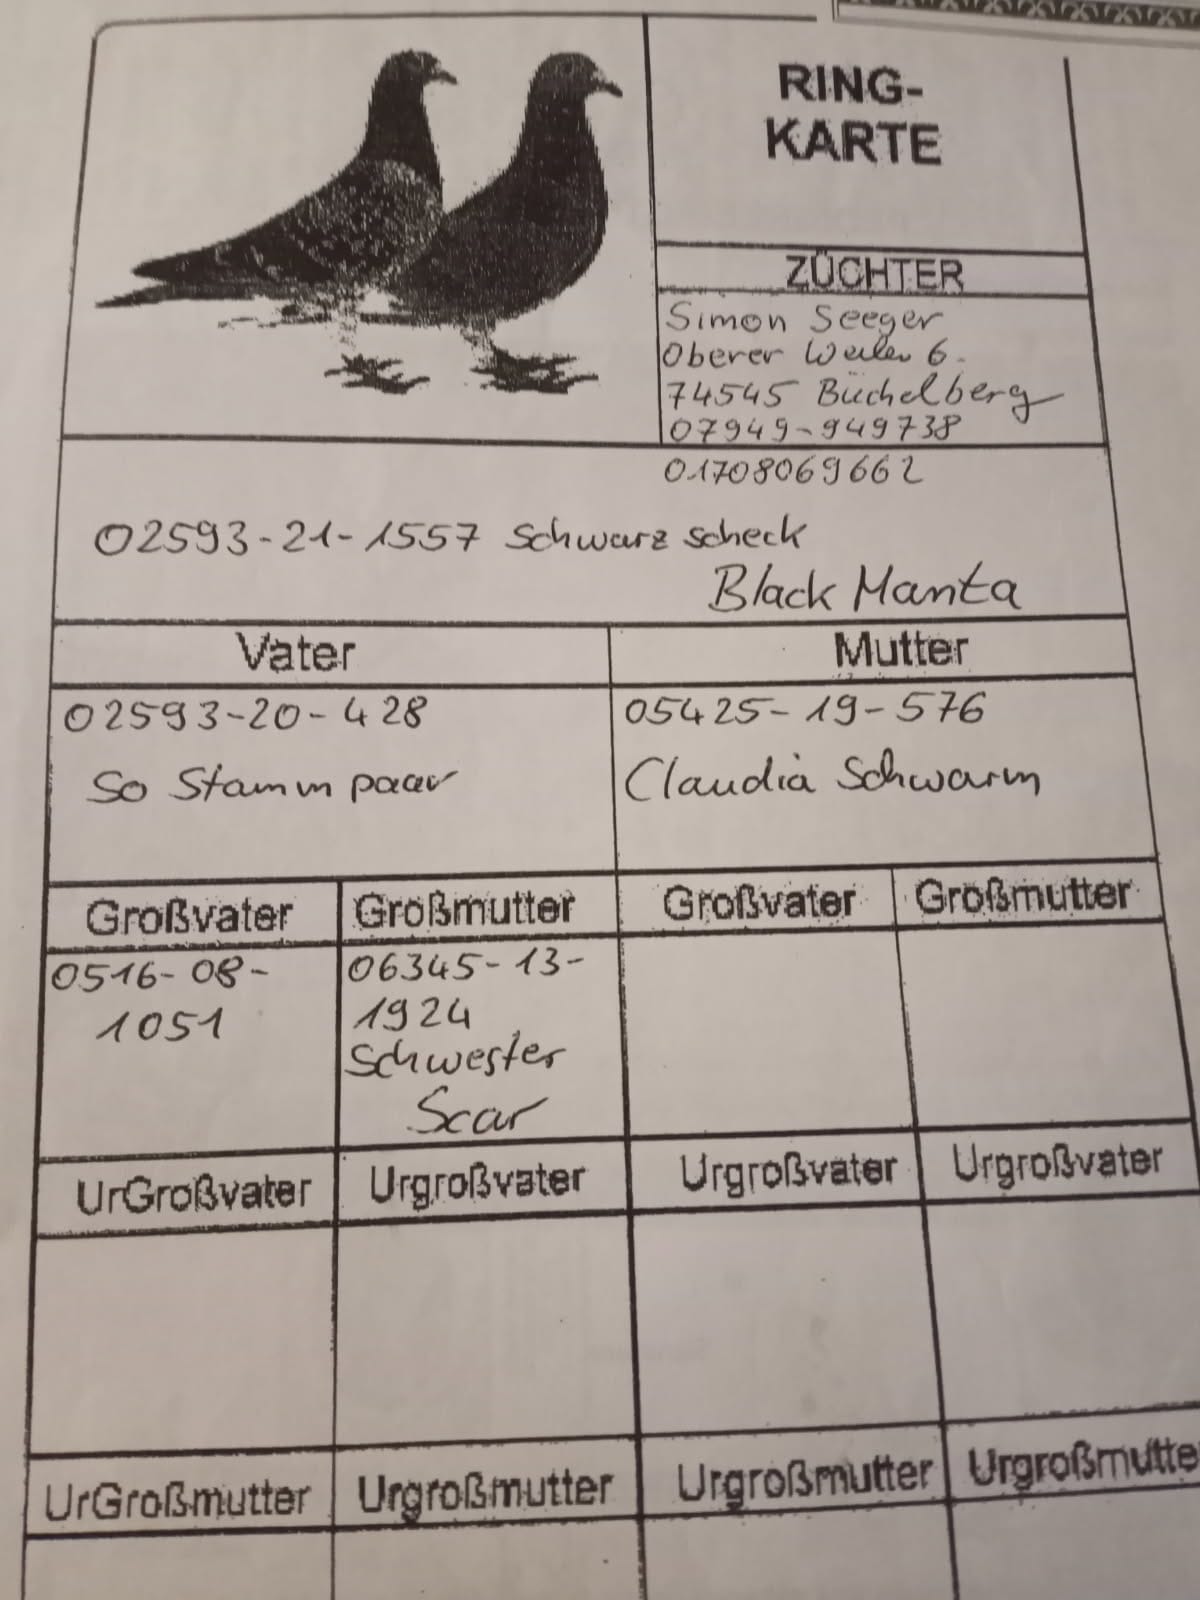 RING-
KARTE
ZÜCHTER
Simon Seeger
Oberer Weiler 6.
74545 Büchelberg
07949-949738
01708069662
02593-21-1557 Schwarz scheck
Black Manta
Vater Mutter
02593-20-428 05425-19-576
So Stammpaar Claudia Schwarm
Großvater Großmutter Großvater Großmutter
0516-08- 06345-13-
1051 1924
Schwester
Scar
UrGroßvater Urgroßvater Urgroßvater Urgroßvater
UrGroßmutter Urgroßmutter Urgroßmutter Urgroßmutte